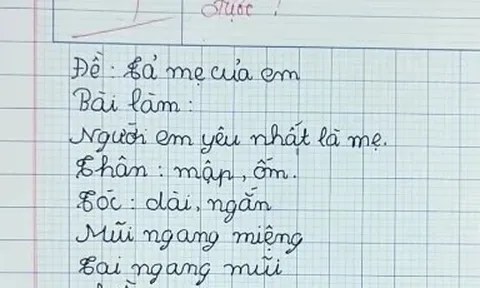 được !
Đề : Tả mẹ của em
Bài làm :
Người em yêu nhất là mẹ.
Thân : mập, ốm.
Tóc : dài, ngắn
Mũi ngang miệng
Tai ngang mũi